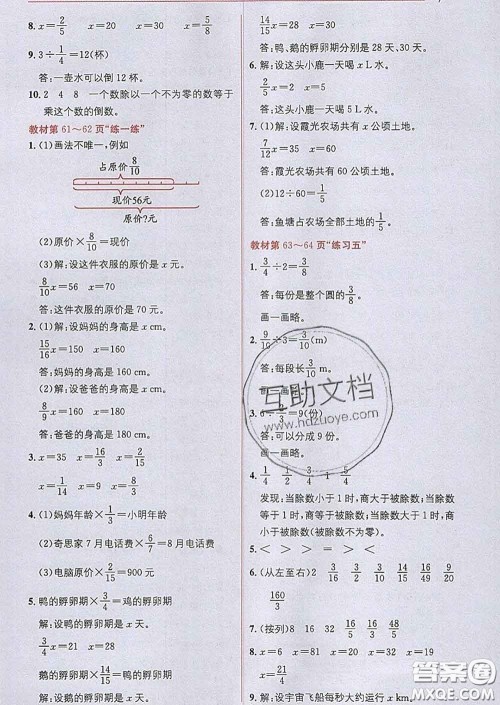 8. x=32 x=25 x=3/2 x=5/8
9. 3÷1/4=12(杯)
答:一壶水可以倒 12 杯。
10. 2 4 8 一个数除以一个不为零的数等于
乘这个数的倒数。
教材第 61～62 页“练一练”
1. (1)画法不唯一,例如
占原价8/10
现价56元
原价?元
(2)原价×8/10=现价
(3)解:设这件衣服的原价是 x 元。
8/10x=56 x=70
答:这件衣服的原价是 70 元。
2. (1)解:设妈妈的身高是 x cm。
15/16x=150 x=160
答:妈妈的身高是 160 cm。
(2)解:设爸爸的身高是 x cm。
答:爸爸的身高是 180 cm。
3. x=35 x=16/3 x=2/15
x=1/14 x=9 x=8/3
4. (1)妈妈年龄×1/3=小明年龄
(2)奇思家 7 月电话费×6/7=8 月电话费
(3)电脑原价×2/15=900元
5. 鸭的孵卵期×3/4=鸡的孵卵期
解:设鸭的孵卵期是 x 天。
3/4x=21 x=28
鹅的孵卵期×14/15=鸭的孵卵期
解:设鹅的孵卵期是 x 天。
14/15x=28 x=30
答:鸭、鹅的孵卵期分别是 28 天、30 天。
6. 解:设这头小鹿一天喝 x L 水。
答:这头小鹿一天喝 5 L 水。
7. (1)解:设霞光农场共有 x 公顷土地。
7/12x=35 x=60
答:霞光农场共有 60 公顷土地。
(2)12÷60=1/5
答:鱼塘占农场全部土地的1/5。
教材第 63～64 页“练习五”
1. 3/4÷2=3/8
答:每份是整个圆的3/8。
画一画略。
2. 9/10÷3=3/10(m)
答:每段长3/10m。
画一画略。
3. 6÷2/3=9(份)
答:可以分成 9 份。
画一画略。
4. 1/4 1/2 1 5/4
发现:当除数小于 1 时,商大于被除数;当除数
等于 1 时,商等于被除数;当除数大于 1 时,商
小于被除数(被除数不为零)。
5. < > = >
6. (从左至右)2 3/16 3/2 3/10 3/32
160/3
7. (按列)8 16 32 1/48 1/24 1/6
8. x=27 x=32 x=0 x=18
x=21/4
9. 解:设宇宙飞船每秒大约运行 x km。
互助文档
www.hdzuoye.com
答案圈
MXQE.COM